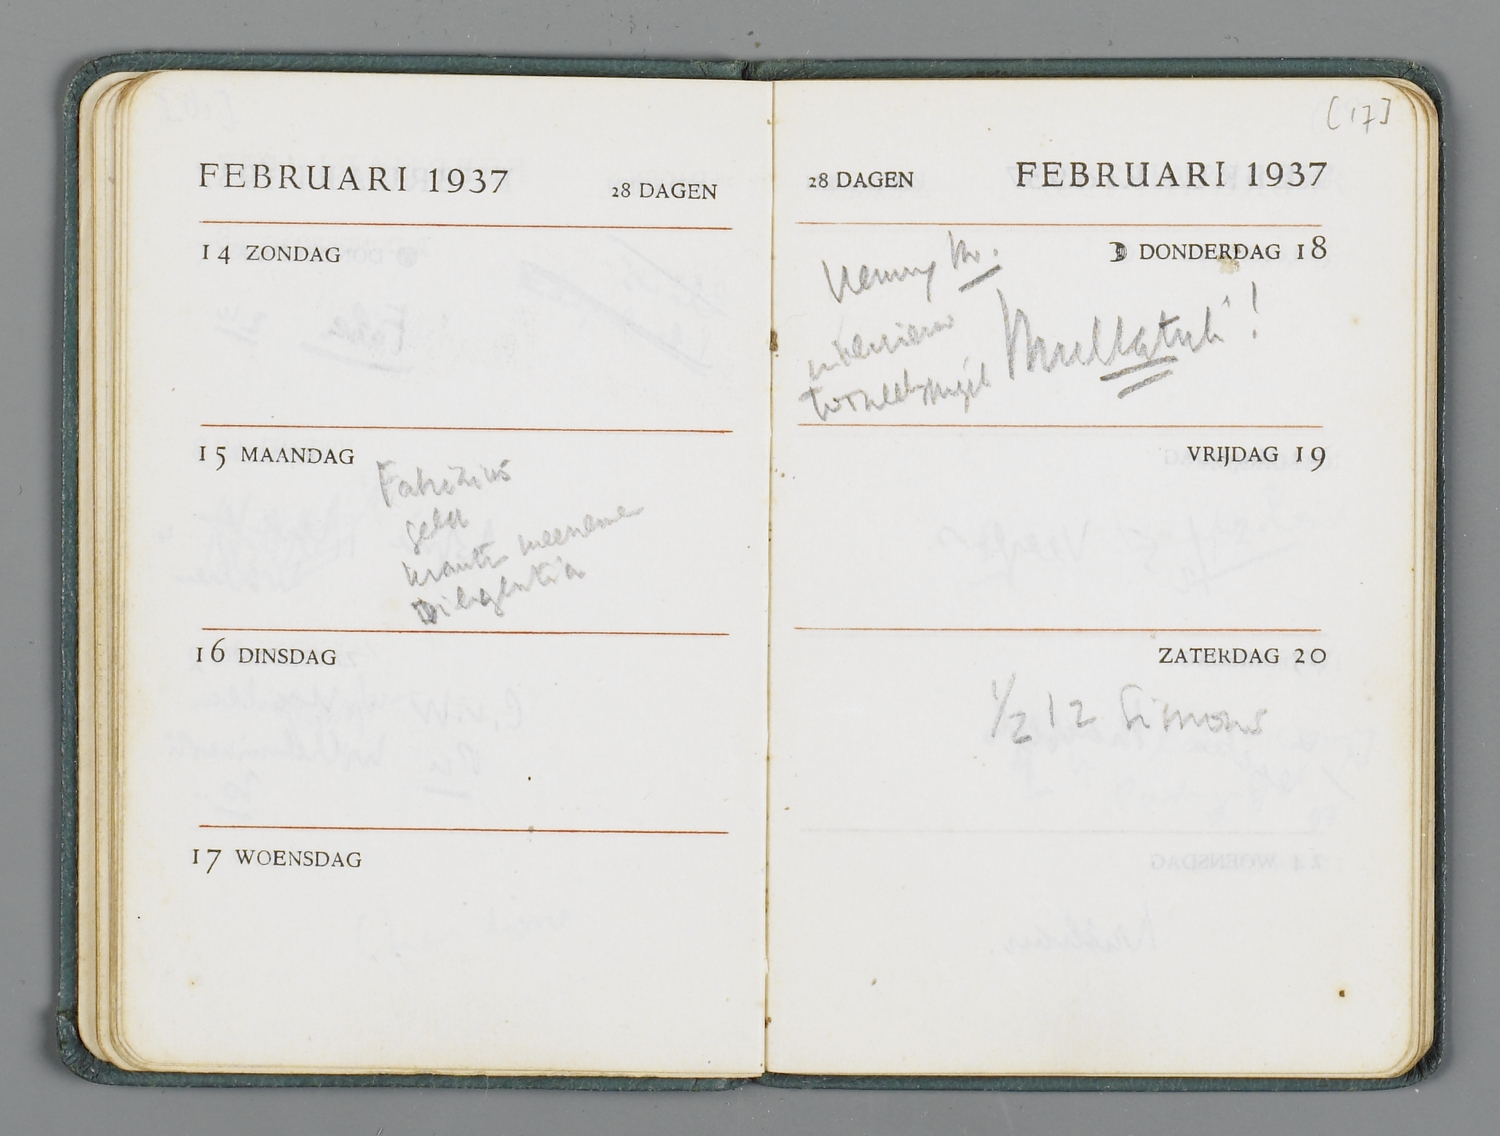 FEBRUARI 1937
28 DAGEN
14 ZONDAG
15 MAANDAG
Fabrizius
geld
krant meename
Diligentia
16 DINSDAG
17 WOENSDAG
[17]
28 DAGEN
FEBRUARI 1937
DONDERDAG 18
interview
Multatuli!
VRIJDAG 19
ZATERDAG 20
1/2 12 Simons